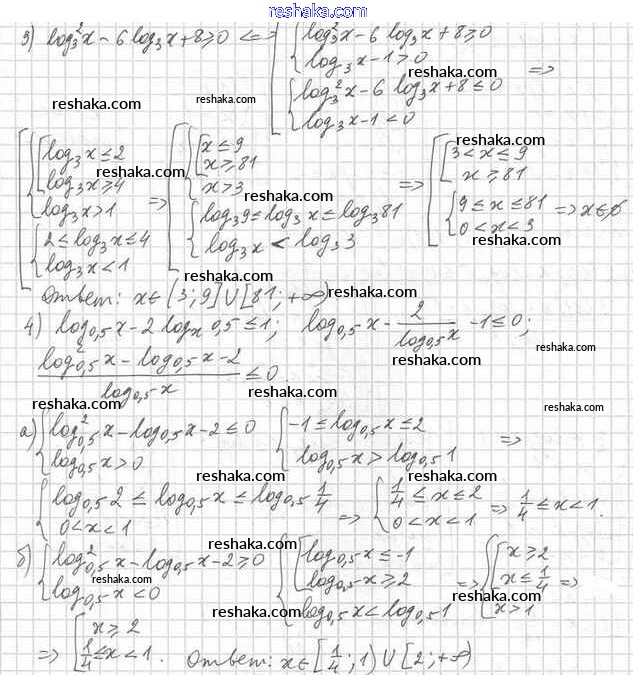 reshaka.com
3) log₃²x − 6 log₃x + 8 ⩾ 0 <=> [ { log₃²x − 6 log₃x + 8 ⩾ 0
log₃x − 1 > 0
{ log₃²x − 6 log₃x + 8 ≤ 0
log₃x − 1 < 0 =>
reshaka.com reshaka.com reshaka.com
[ { [ log₃x ≤ 2
log₃x ⩾ 4
log₃x > 1
{ 2 ≤ log₃x ≤ 4
log₃x < 1 =>
[ { [ x ≤ 9
x ⩾ 81
x > 3
{ log₃9 ≤ log₃x ≤ log₃81
log₃x < log₃3 =>
[ [ 3 < x ≤ 9
x ⩾ 81
{ 9 ≤ x ≤ 81
0 < x < 3 => x ∈ ∅
reshaka.com reshaka.com reshaka.com reshaka.com reshaka.com
Ответ: x ∈ (3; 9] ∪ [81; +∞)
reshaka.com
4) log₀,₅x − 2 logₓ0,5 ≤ 1; log₀,₅x − 2/log₀,₅x − 1 ≤ 0;
reshaka.com reshaka.com
(log²₀,₅x − log₀,₅x − 2)/log₀,₅x ≤ 0.
reshaka.com reshaka.com reshaka.com
а) { log²₀,₅x − log₀,₅x − 2 ≤ 0
log₀,₅x > 0
{ −1 ≤ log₀,₅x ≤ 2
log₀,₅x > log₀,₅1 =>
reshaka.com reshaka.com
{ log₀,₅2 ≤ log₀,₅x ≤ log₀,₅1/4
0 < x < 1 => { 1/4 ≤ x ≤ 2
0 < x < 1 => 1/4 ≤ x < 1.
reshaka.com reshaka.com
б) { log²₀,₅x − log₀,₅x − 2 ⩾ 0
log₀,₅x < 0
{ [ log₀,₅x ≤ −1
log₀,₅x ⩾ 2
log₀,₅x < log₀,₅1 =>
{ [ x ⩾ 2
x ≤ 1/4
x > 1 =>
reshaka.com reshaka.com reshaka.com reshaka.com
=> [ x ⩾ 2
1/4 ≤ x < 1. Ответ: x ∈ [1/4; 1) ∪ [2; +∞)
reshaka.com reshaka.com